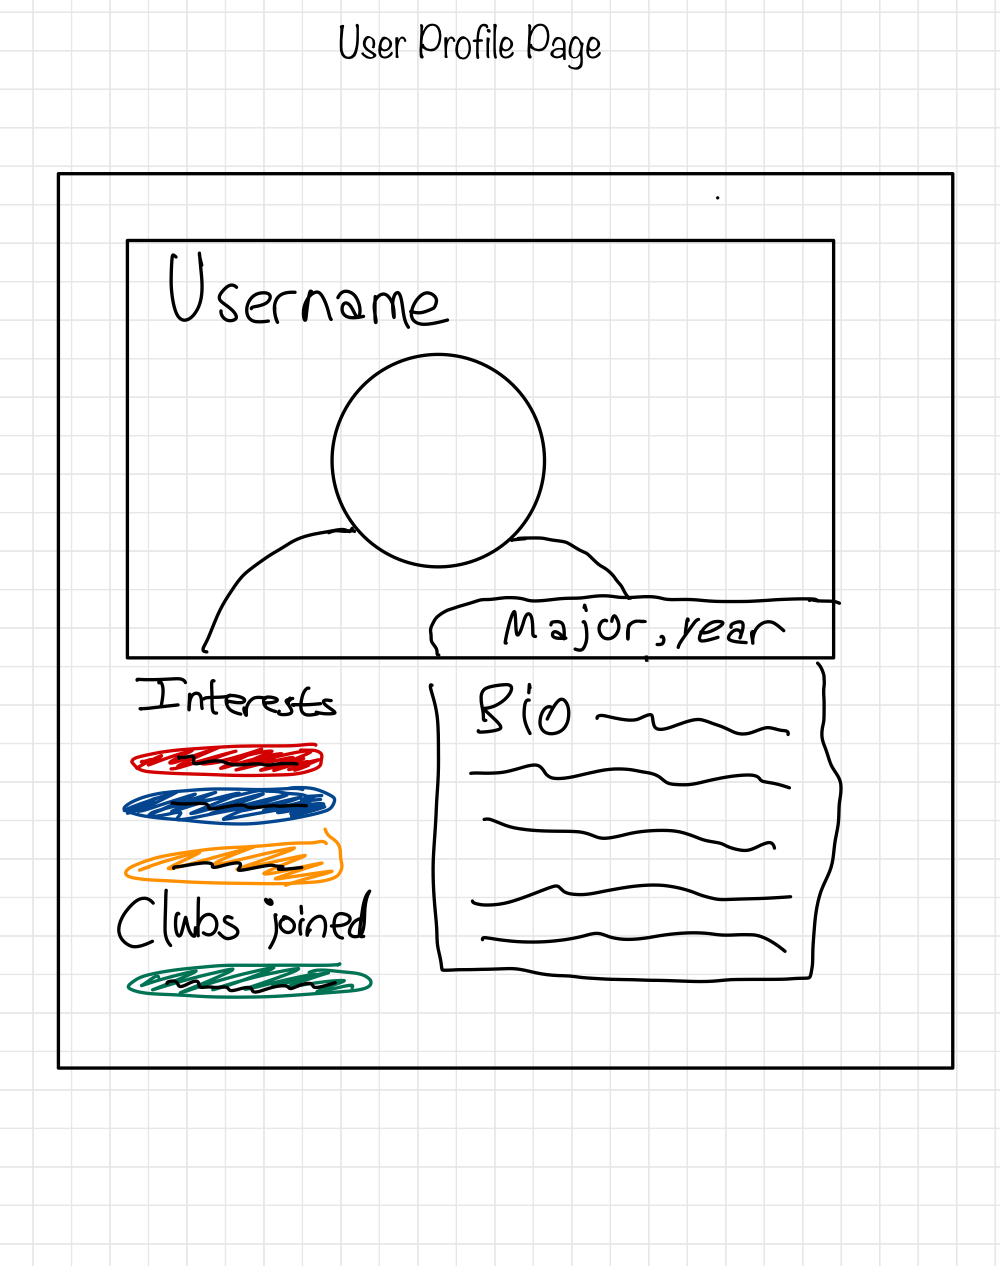 User Profile Page
Username
Major, year
Interests
Bio
Clubs joined